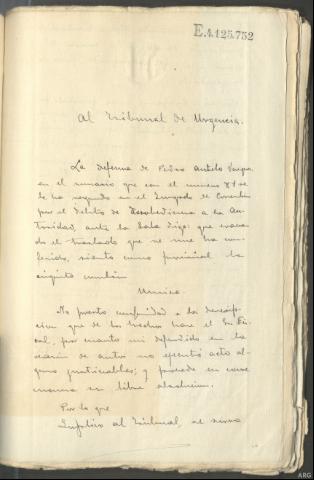 E.4.125.752
Al Tribunal de Urgencia.
La defensa de Pedro Antelo
en el sumario que con el numero 84 se
le ha seguido en el Juzgado de Corcubion
por el delito de Desobediencia a la Au-
toridad, ante la Sala digo: que evacuan-
do el traslado que se me ha con-
ferido, siento como provisional la
siguiente conclusión
Unica.
No presto conformidad a la descrip-
cion que de los hechos hace el Sr. Fis-
cal, por cuanto mi defendido en la
ocasion de autos no ejecutó acto al-
guno justiciable; y procede en conse-
cuencia su libre absolucion.
Por lo que
Suplico al Tribunal, se sirva
ARG